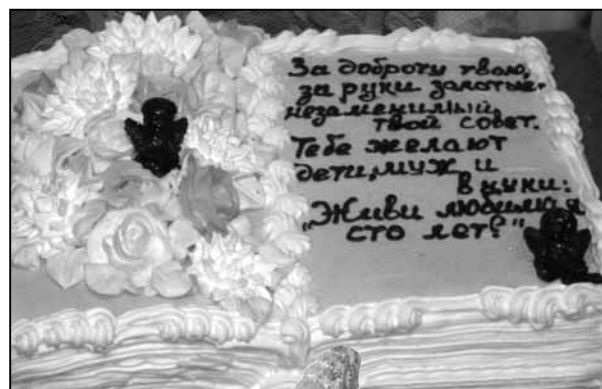 За доброту твою,
за руки золотые,
незаменимый
твой совет.
Тебе желают
дети, муж и
внуки:
„Живи любимая
сто лет!"